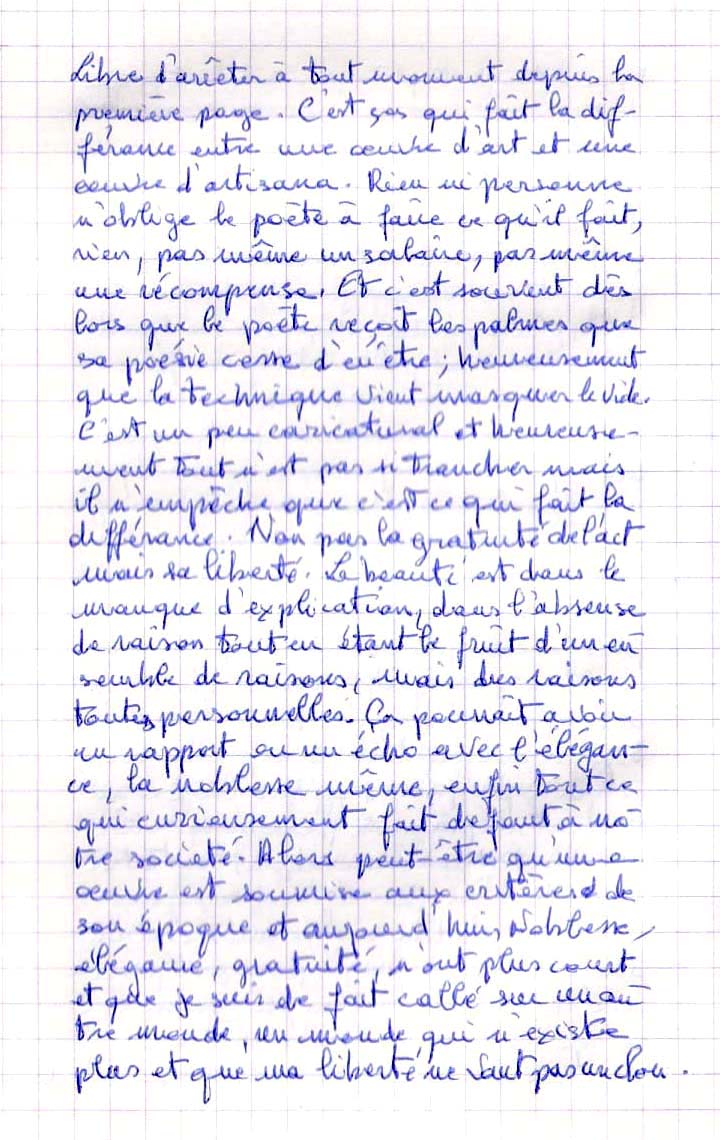 Libre d'arrêter à tout moment depuis la
première page. C'est ças qui fait la dif-
férance entre une oeuvre d'art et une
oeuvre d'artisana. Rien ni personne
n'oblige le poète à faire ce qu'il fait,
rien, pas même un salaire, pas même
une récompense. Et c'est souvent dès
lors que le poète reçoit les palmes que
sa poésie cesse d'en être ; heureusement
que la technique vient masquer le vide.
C'est un peu caricatural et heureuse-
ment tout n'est pas si trancher mais
il n'empêche que c'est ce qui fait la
différance. Non pas la gratuité de l'act
mais sa liberté. La beauté est dans le
manque d'explication, dans l'absense
de raison tout en étant le fruit d'un en
semble de raisons, mais des raisons
toutes personnelles. Ça pourrait avoir
un rapport ou un écho avec l'élégan-
ce, la noblesse même, enfin tout ce
qui curieusement fait defaut à no
tre societé. Alors peut-être qu'une
oeuvre est soumise aux critères de
son époque et aujourd'hui, Noblesse,
élégance, gratuité, n'ont plus court
et que je suis de fait callé sur un au
tre monde, un monde qui n'existe
plus et que ma liberté ne vaut pas un clou.